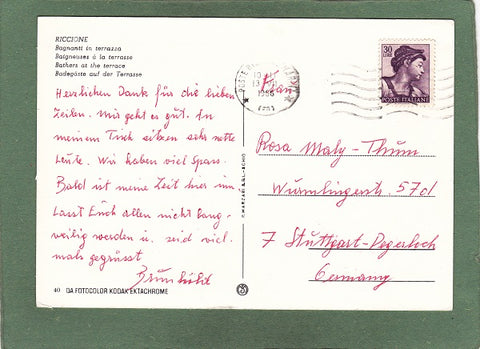 RICCIONE
Bagnanti in terrazza
Baigneuses à la terrasse
Bathers at the terrace
Badegäste auf der Terrasse
Herzlichen Dank für die lieben
Zeilen. Mir geht es gut. In
meinem Tisch sitzen sehr nette
Leute. Wir haben viel Spass.
Bald ist meine Zeit hier um.
Lasst Euch allen nicht lang-
weilig werden u. seid viel-
mals gegrüsst
Brünhild
40 DA FOTOCOLOR KODAK EKTACHROME
1966
30
LIRE
POSTE ITALIANE
Frau
Rosa Maly-Thum
Wurmlingerstr. 57d
7 Stuttgart-Degerloch
Germany